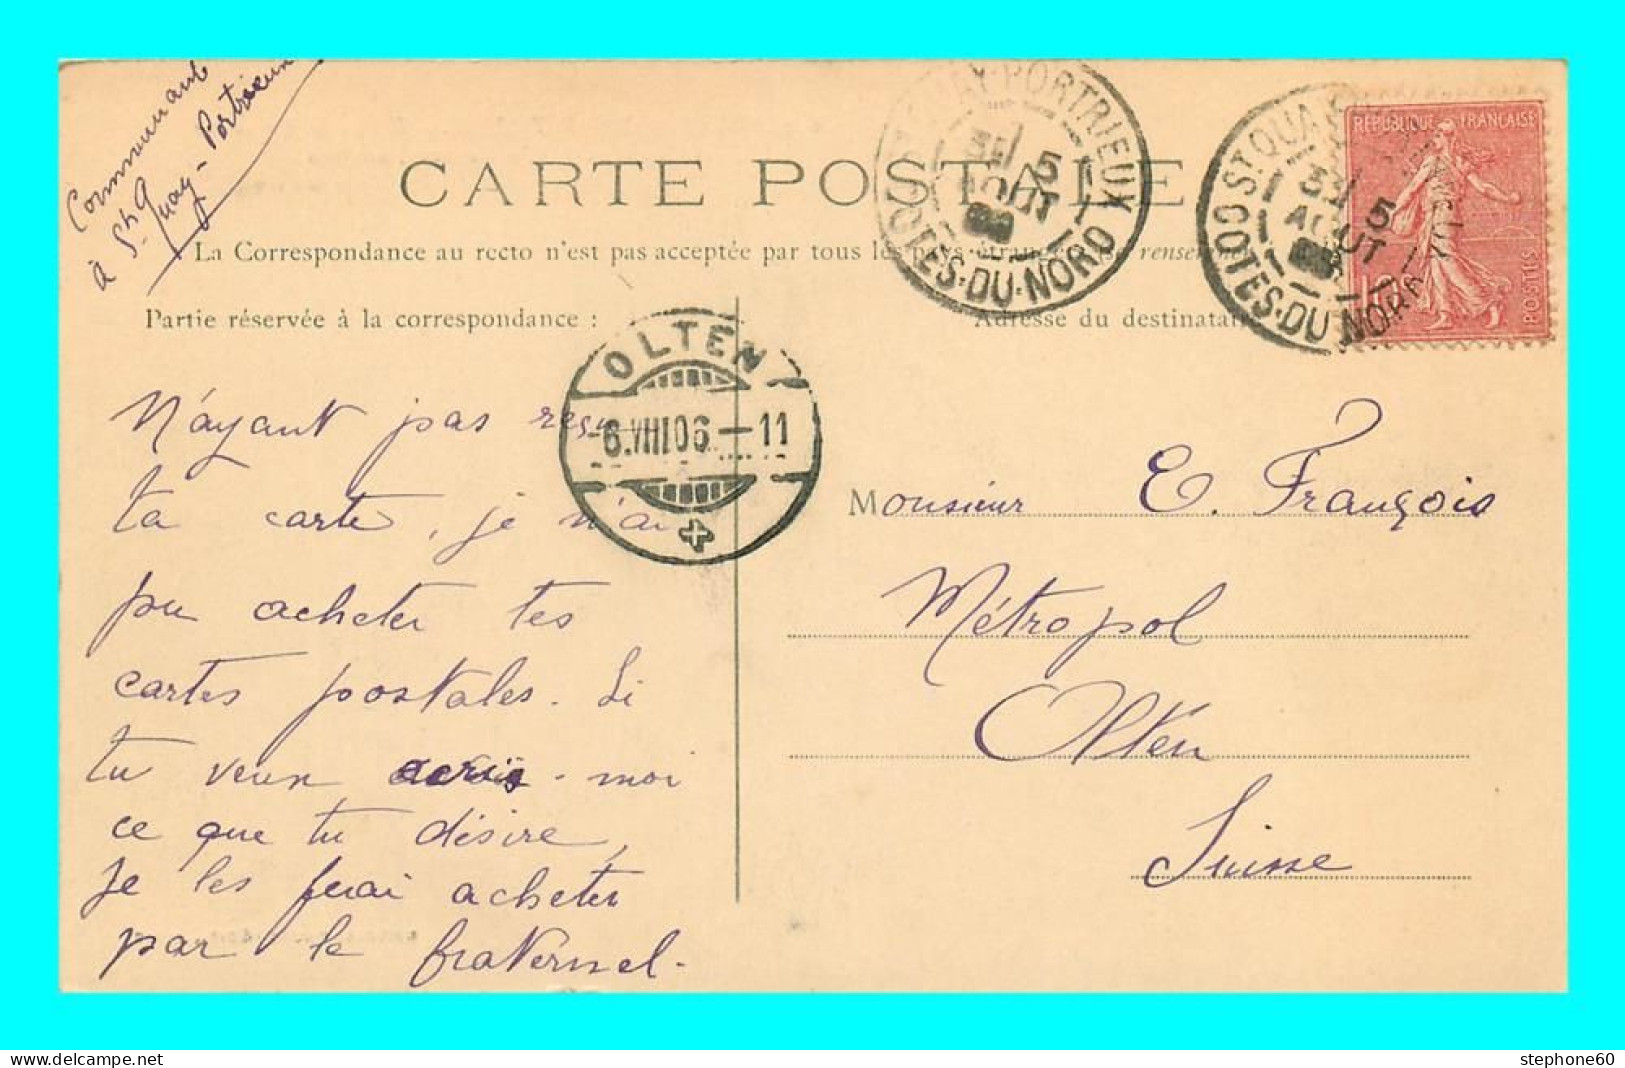 Commenant
à St Quay-Portrieux
CARTE POSTALE
La Correspondance au recto n'est pas acceptée par tous les pays étrangers
Partie réservée à la correspondance :
Adresse du destinataire
ST QUAY-PORTRIEUX
5
AOUT
COTES-DU-NORD
ST QUAY
5
AOUT
COTES-DU-NORD
REPUBLIQUE FRANÇAISE
10
POSTES
OLTEN
-6.VIII06-11
N'ayant pas reçu
ta carte, je n'ai
pu acheter tes
cartes postales. Si
tu veux écris-moi
ce que tu désire,
je les ferai acheter
par le fraternel.
Monsieur E. François
Métropol
Olten
Suisse
stephone60